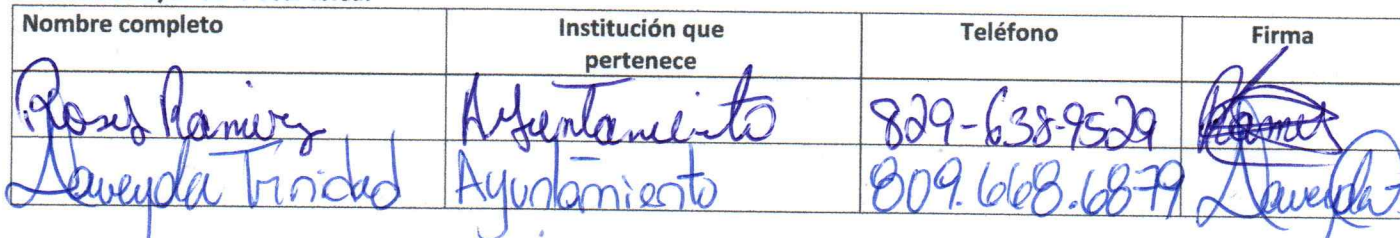 Nombre completo Institución que pertenece Teléfono Firma
Ramirez Ayuntamiento 829-638-9529
Daveyda Trinidad Ayuntamiento 809.668.6879 Daveyda